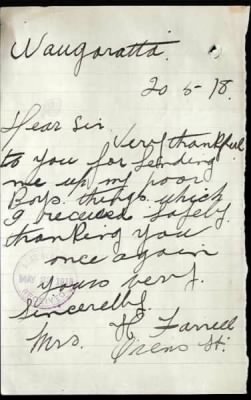 Wangaratta
20-5-18.
Dear Sir
Very thankful
to you for sending
me up my poor
Boys. things. which
I received safely.
thanking you
once again
yours very.
Sincerely.
Mrs. H Farrell
Ovens St.
MAY 1918